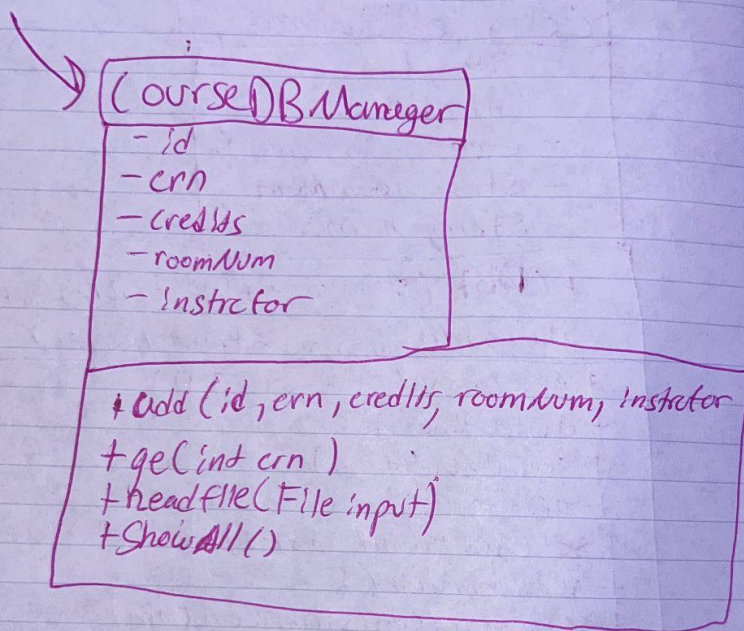 CourseDBManeger
- id
- crn
- credits
- roomNum
- instrctor
+ add (id, crn, credits, roomNum, instrctor
+ ge(int crn )
+ readfile(File input)
+ ShowAll()